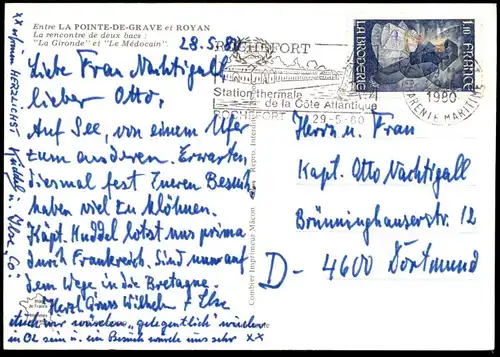 Entre LA POINTE-DE-GRAVE et ROYAN
La rencontre de deux bacs :
"La Gironde" et "Le Médocain".
28.5.80
Liebe Frau Nachtigall
lieber Otto,
Auf See, von einem Ufer
zum anderen. Erwarten
diesmal fest Eueren Besuch
haben viel zu klöhnen.
Käpt. Kuddel lotst uns prima
durch Frankreich. Sind nun auf
dem Wege in die Bretagne.
Herzl. Gruss Wilhelm + Ilse
würden „gelegentlich" wieder
in OL sein u. ein Besuch würde uns sehr xx
xx HERZLICHST Kuddel u. Ilse, Co.
Combier Imprimeur Mâcon
ROCHEFORT
Station thermale
de la Côte Atlantique
ROCHEFORT
29-5-80
1980
CHARENTE MARITIME
1,10 FRANCE
LA BRODERIE
Herrn u. Frau
Kapt. Otto Nachtigall
Brünninghauserstr. 12
D- 4600 Dortmund